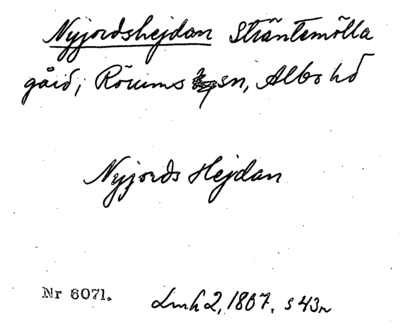 Nyjordshejdan Sträntemölla
gård, Rörums sn, Albo hd
Nyjords Hejdan
Nr 6071.
Lmh 2, 1867. s 43